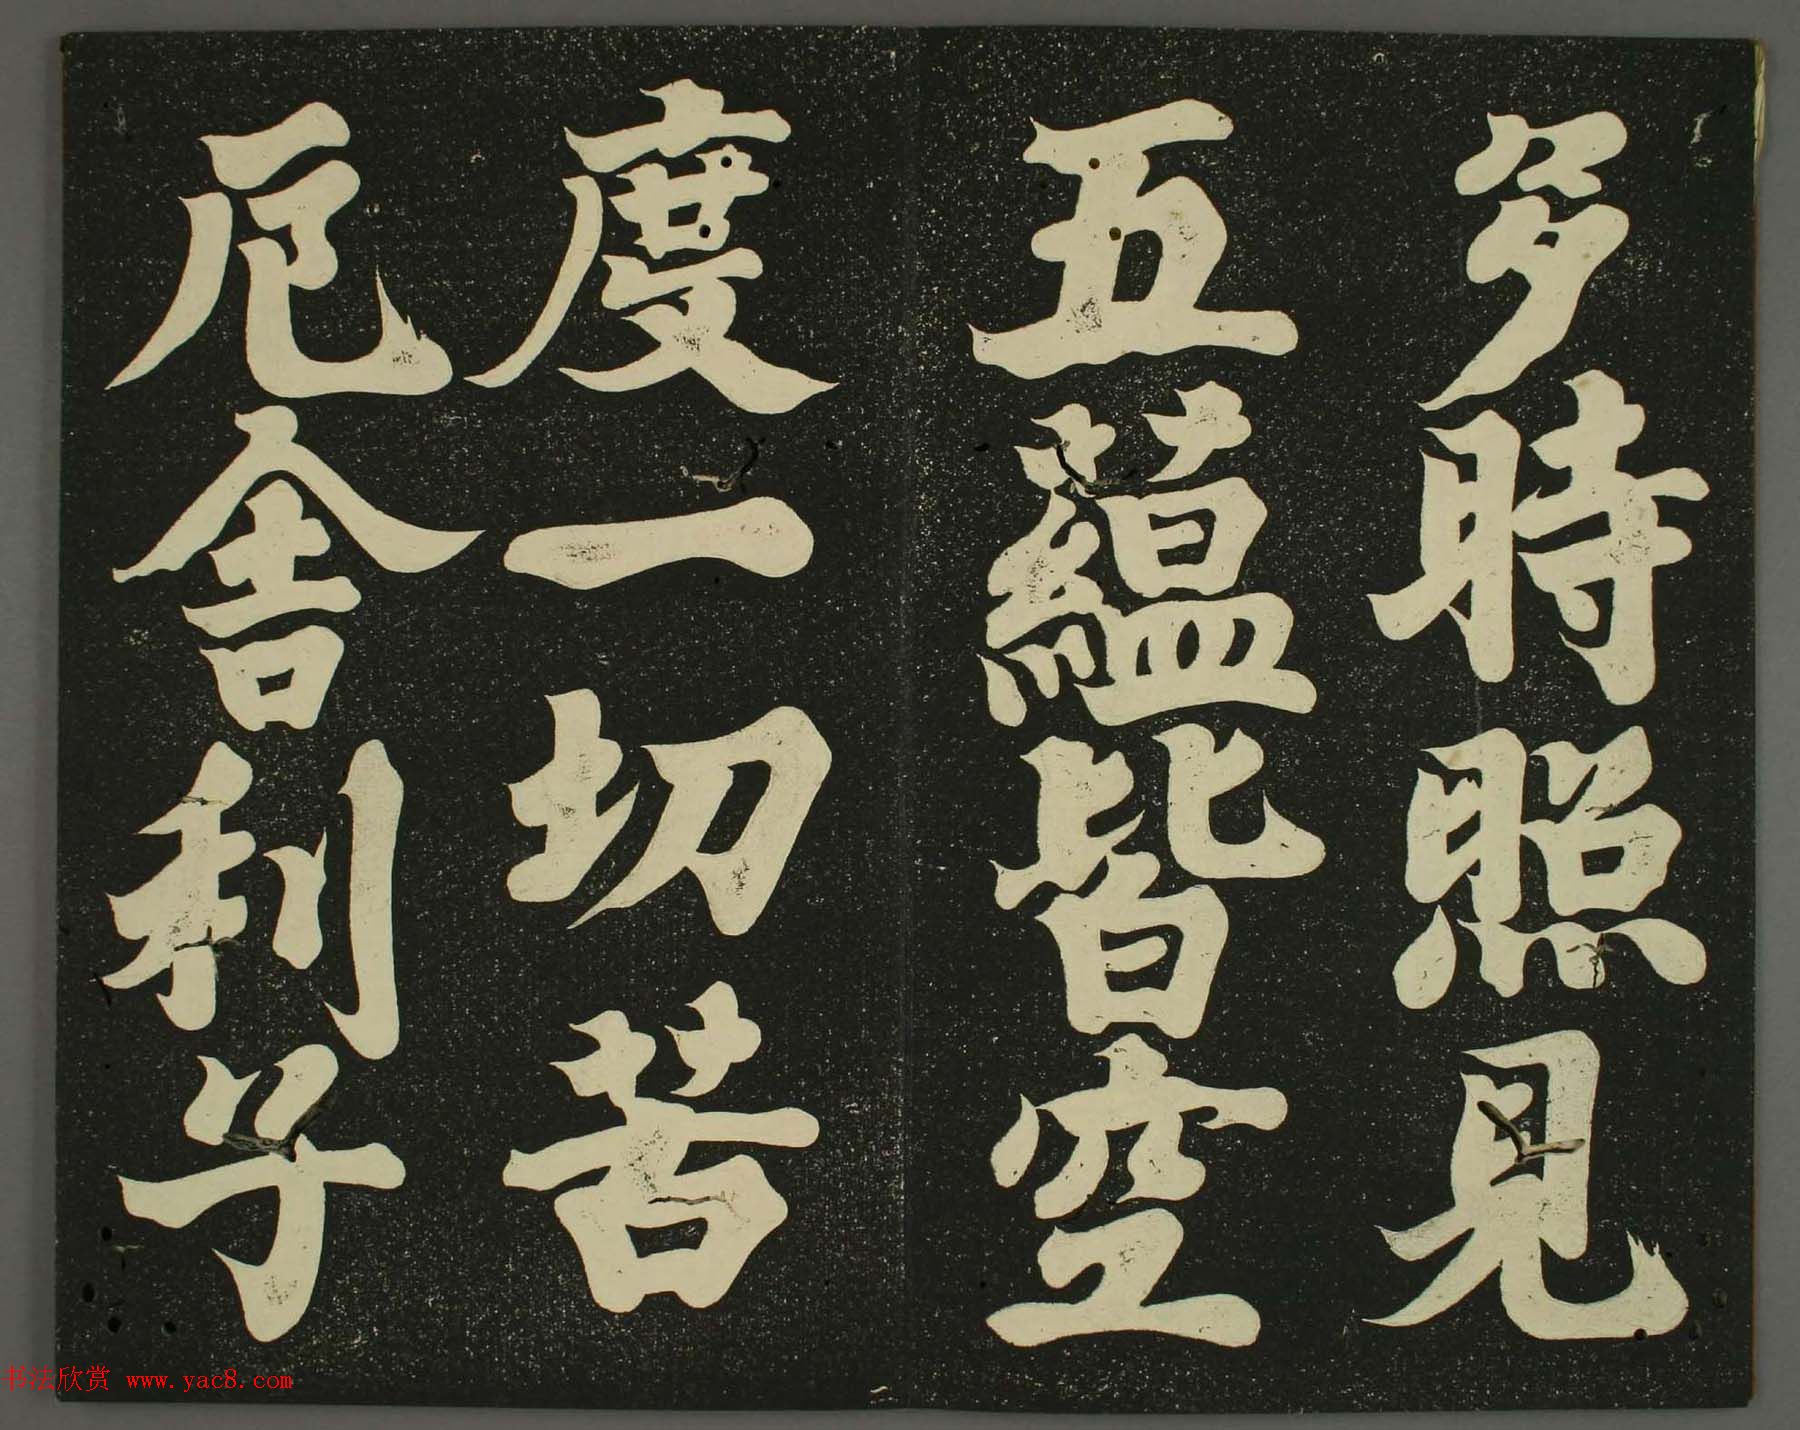 多時照見
五蘊皆空
度一切苦
厄舍利子
书法欣赏 www.yac8.com